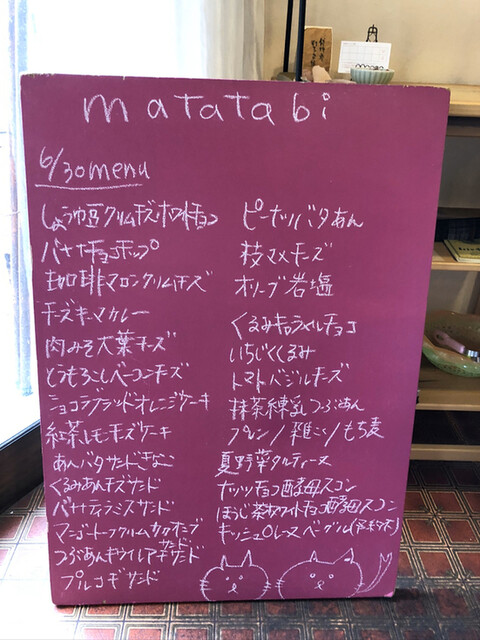 matatabi
6/30 menu
しょうゆ豆クリムチーズホワイトチョコ
バナナチョコホップ
珈琲マロンクリムチーズ
チーズキーマカレー
肉みそ大葉チーズ
とうもろこしベーコンチーズ
ショコラブラッドオレンジケーキ
紅茶レモンチーズケーキ
あんバタサンドきなこ
くるみあんチーズサンド
バナナティラミスサンド
マンゴートーフクリーム
サンド
つぶあんキウイ
プルコギサンド
ピーナッツバタあん
枝マメチーズ
オリーブ岩塩
くるみキャラメルチョコ
いちじくくるみ
トマトバジルチーズ
抹茶練乳つぶあん
プレーン/雑こく/もち麦
夏野菜タルティーヌ
ナッツチョコ酵母スコン
ほうじ茶ホワイトチョコ酵母スコン
キッシュプレーヌベーグル